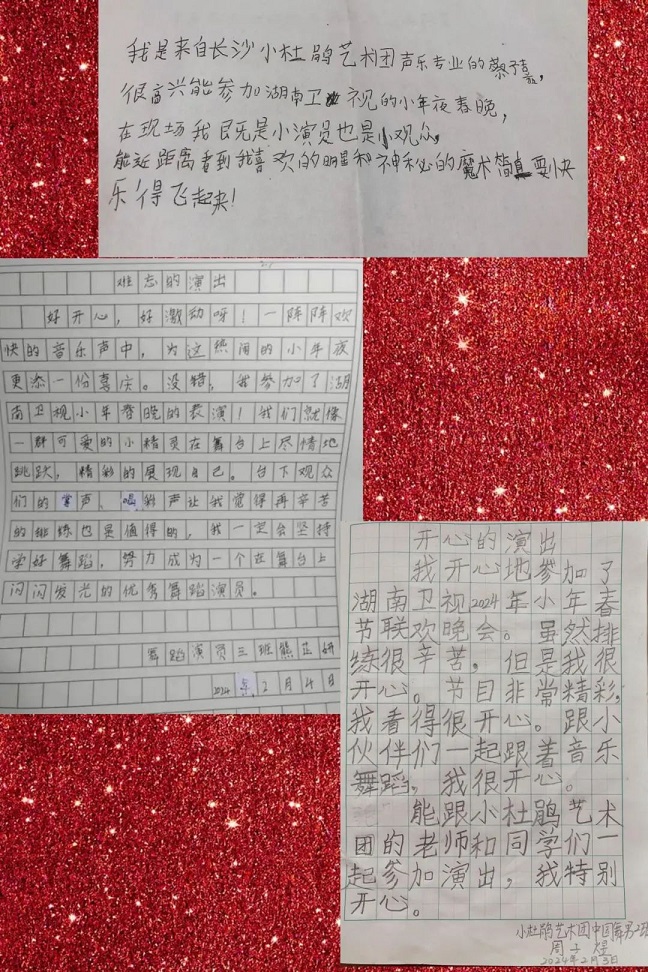 我是来自长沙小杜鹃艺术团声乐专业的黎予嘉，
很高兴能参加湖南卫视的小年夜春晚，
在现场我既是小演员也是小观众。
能近距离看到我喜欢的明星和神秘的魔术简直要快
乐得飞起来！
难忘的演出
好开心，好激动呀！一阵阵欢
快的音乐声中，为这热闹的小年夜
更添一份喜庆。没错，我参加了湖
南卫视小年春晚的表演！我们就像
一群可爱的小精灵在舞台上尽情地
跳跃，精彩的展现自己。台下观众
们的掌声、喝彩声让我觉得再辛苦
的排练也是值得的，我一定会坚持
学好舞蹈，努力成为一个在舞台上
闪闪发光的优秀舞蹈演员。
舞蹈演员三班熊芷妍
2024年2月4日
开心的演出
我开心地参加了
湖南卫视2024年小年春
节联欢晚会。虽然排
练很辛苦，但是我很
开心。节目非常精彩，
我看得很开心。跟小
伙伴们一起跟着音乐
舞蹈，我很开心。
能跟小杜鹃艺术
团的老师和同学们一
起参加演出，我特别
开心。
小杜鹃艺术团中国舞男2班
周子煜
2024年2月3日